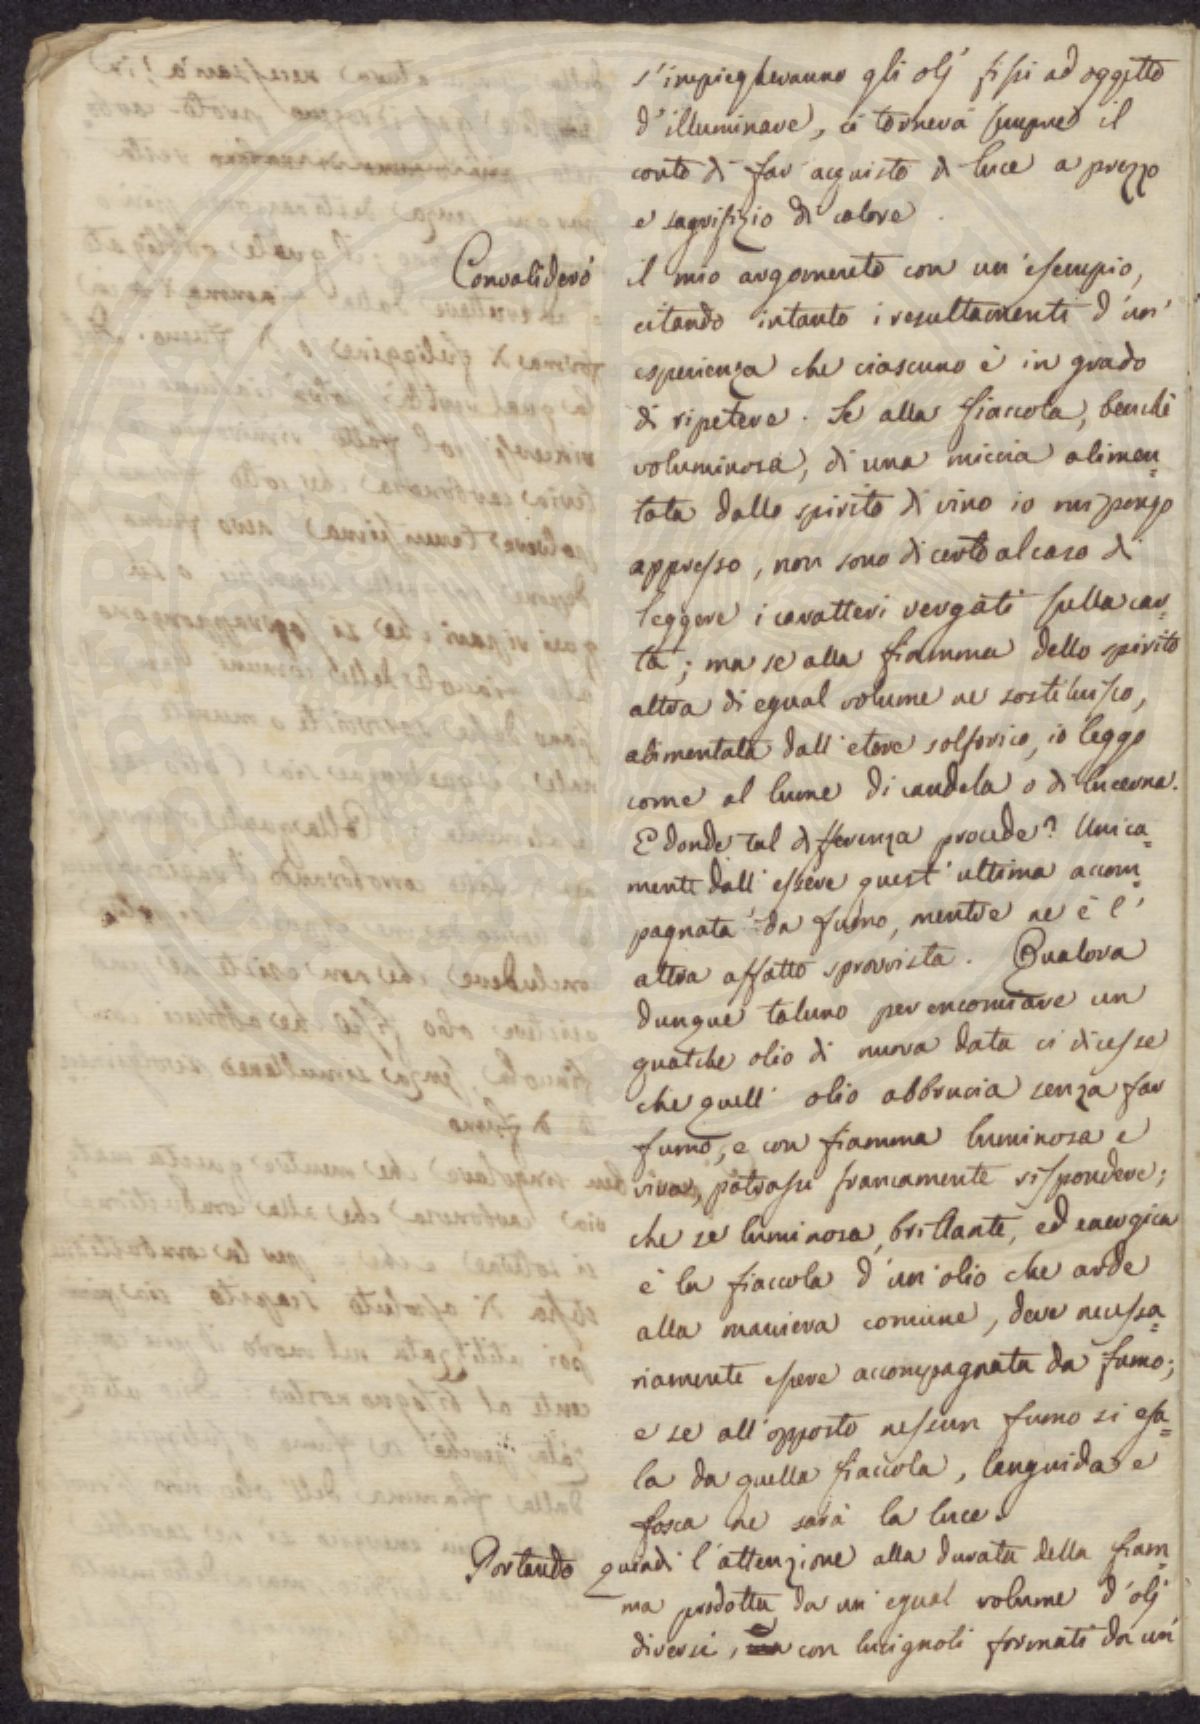 s'impiegheranno gli olj fissi ad oggetto
d'illuminare, ci tornerà sempre il
conto di far acquisto di luce a prezzo
e sagrifizio di calore.
Convaliderò il mio argomento con un'esempio,
citando intanto i resultamenti d'un'
esperienza che ciascuno è in grado
di ripetere. Se alla fiaccola, benchè
voluminosa, di una miccia alimen=
tata dallo spirito di vino io mi pongo
appresso, non sono di certo al caso di
leggere i caratteri vergati sulla car=
ta; ma se alla fiamma dello spirito
altra di egual volume ne sostituisco,
alimentata dall'etere solforico, io leggo
come al lume di candela o di lucerna.
E donde tal differenza procede? Unica=
mente dall'essere quest'ultima accom=
pagnata da fumo, mentre ne è l'
altra affatto sprovvista. Qualora
dunque taluno per encomiare un
qualche olio di nuova data ci dicesse
che quell'olio abbrucia senza far
fumo, e con fiamma luminosa e
viva, potrassi francamente rispondere;
che se luminosa, brillante, ed energica
è la fiaccola d'un'olio che arde
alla maniera comune, deve necessa=
riamente essere accompagnata da fumo;
e se all'opposto nessun fumo si esa=
la da quella fiaccola, languida e
fosca ne sarà la luce.
Portando quindi l'attenzione alla durata della fiam=
ma prodotta da un egual volume d'olj
diversi, e con lucignoli formati da un'